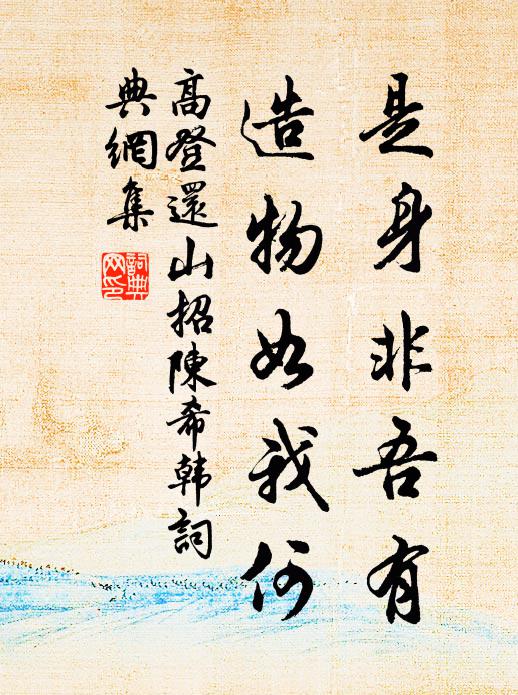 是身非吾有
造物如我何
高登還山招陳希韩詞
典網集
詞典网印